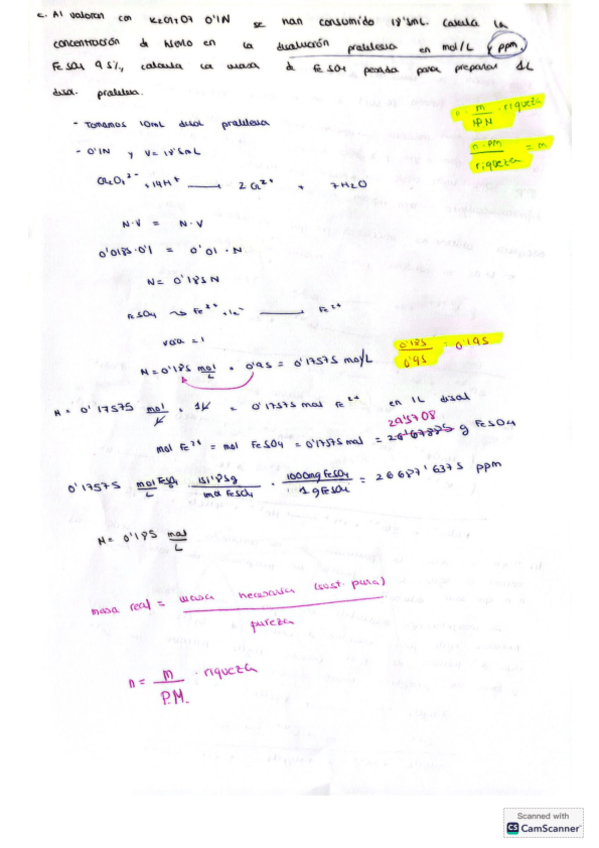 c. Al valorar con K2Cr2O7 0'1N se han consumido 18'5mL. Calcula la
concentración de hierro en la disolución problema en mol/L y ppm.
FeSO4 95%, calcula la masa de FeSO4 pesada para preparar 1L
disol. problema.
- Tomamos 10mL disol problema
n = m/P.M · riqueza
- 0'1N y V = 18'5mL
n · PM / riqueza = m
Cr2O7 2- + 14H+ → 2Cr3+ + 7H2O
N·V = N·V
0'0185·0'1 = 0'01·N
N = 0'185N
FeSO4 → Fe2+ + 1e- → Fe2+
= 1
N = 0'185 mol/L · 0'95 = 0'17575 mol/L
0'185/0'95 = 0'195
N = 0'17575 mol/L · 1L = 0'17575 mol Fe2+ en 1L disol
29'5708
mol Fe2+ = mol FeSO4 = 0'17575 mol = g FeSO4
0'17575 mol FeSO4/L · 151'85g/mol FeSO4 · 1000mg FeSO4/1gFeSO4 = 26687'6375 ppm
N = 0'185 mol/L
masa real = masa necesaria (sust. pura) / pureza
n = m/P.M. · riqueza
Scanned with
CS CamScanner